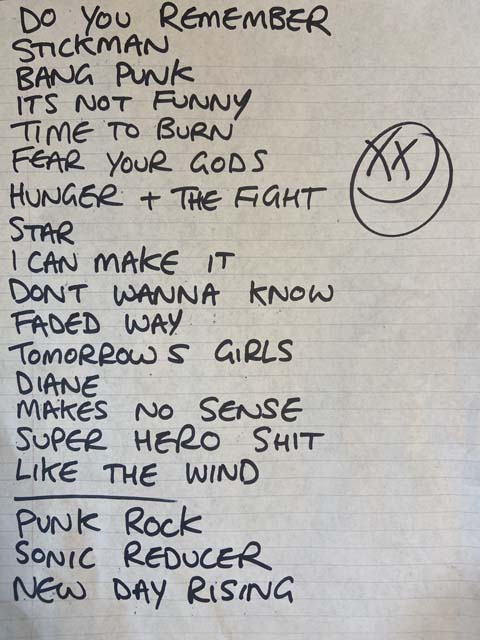 DO YOU REMEMBER
STICKMAN
BANG PUNK
ITS NOT FUNNY
TIME TO BURN
FEAR YOUR GODS
HUNGER + THE FIGHT
STAR
I CAN MAKE IT
DONT WANNA KNOW
FADED WAY
TOMORROWS GIRLS
DIANE
MAKES NO SENSE
SUPER HERO SHIT
LIKE THE WIND
PUNK ROCK
SONIC REDUCER
NEW DAY RISING